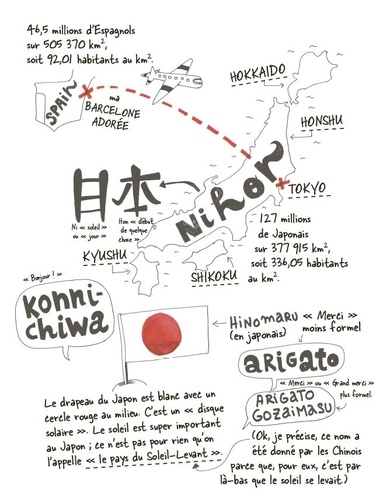 46,5 millions d'Espagnols
sur 505 370 km²,
soit 92,01 habitants au km².
SPAIN
ma
BARCELONE
ADORÉE
HOKKAIDO
HONSHU
TOKYO
日本
Ni « soleil »
ou « jour »
Hon « début
de quelque
chose »
Nihon
127 millions
de Japonais
sur 377 915 km²,
soit 336,05 habitants
au km².
KYUSHU
SHIKOKU
« Bonjour ! »
KONNI-
CHIWA
HINOMARU
(en japonais)
« Merci »
moins formel
ARIGATO
« Merci » ou « Grand merci »
plus formel
ARIGATO
GOZAIMASU
Le drapeau du Japon est blanc avec un
cercle rouge au milieu. C'est un « disque
solaire ». Le soleil est super important
au Japon ; ce n'est pas pour rien qu'on
l'appelle « le pays du Soleil-Levant ».
(Ok, je précise, ce nom a
été donné par les Chinois
parce que, pour eux, c'est par
là-bas que le soleil se levait)